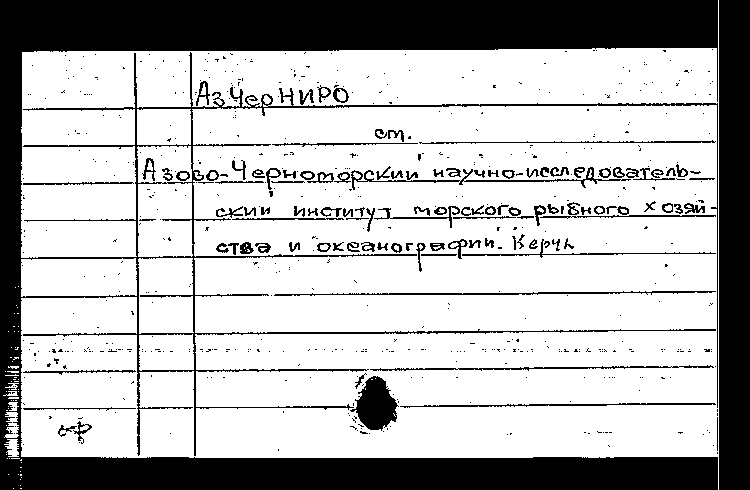 АзЧерНИРО
см.
Азово-Черноморский научно-исследователь-
ский институт морского рыбного хозяй-
ства и океанографии. Керчь